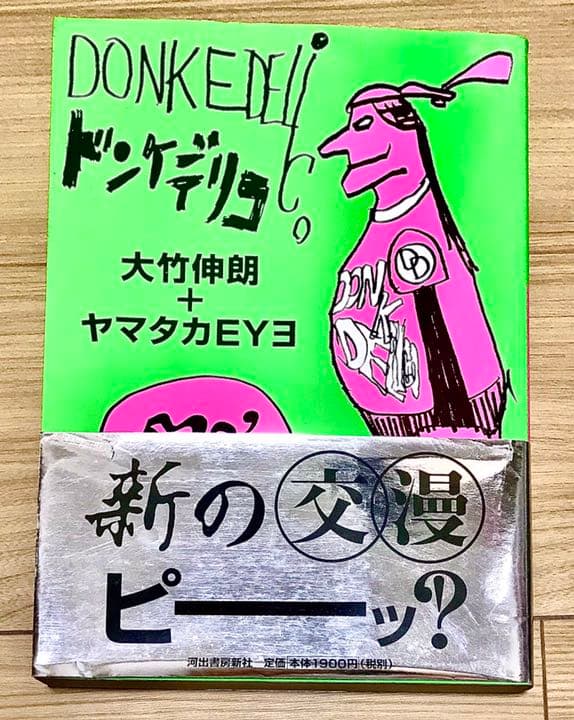 DONKEDELiCo
ドンケデリコ
大竹伸朗
+
ヤマタカEYヨ
DO
DON
新の交漫
ピーーッ?
河出書房新社 定価 本体1900円(税別)